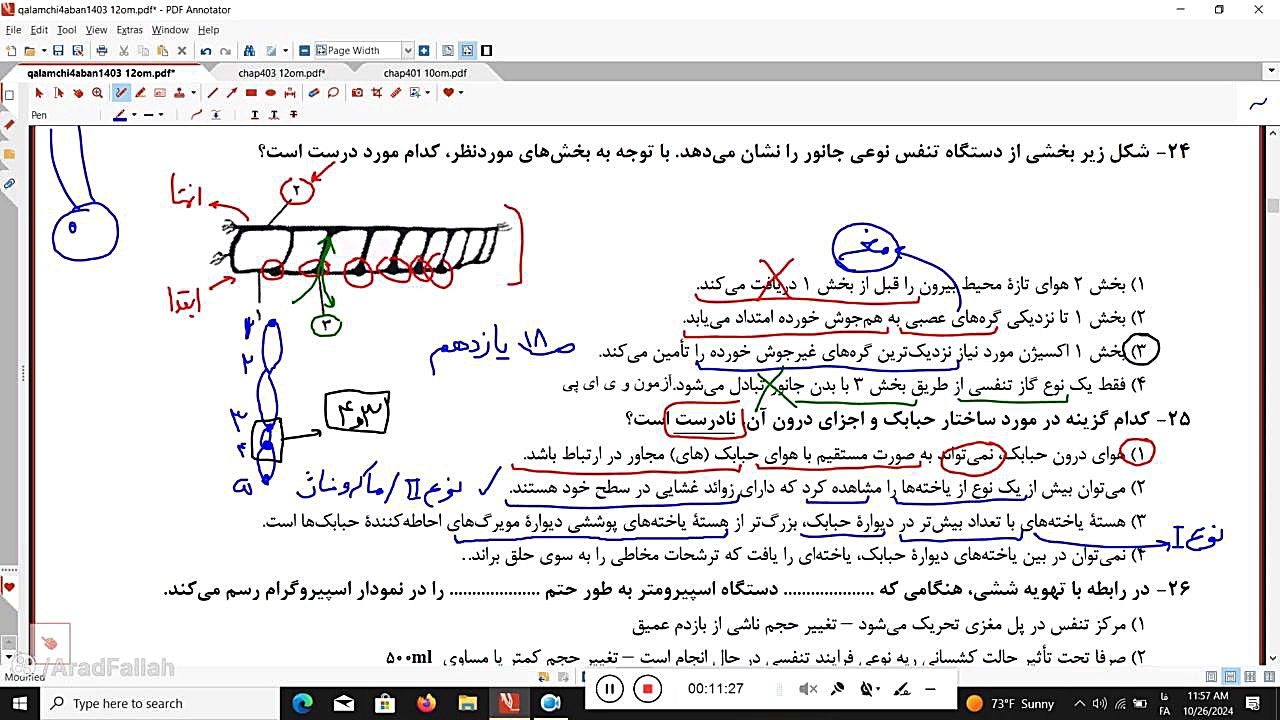 qalamchi4aban1403 12om.pdf* - PDF Annotator
File Edit Tool View Extras Window Help
Page Width
qalamchi4aban1403 12om.pdf* chap403 12om.pdf* chap401 10om.pdf
Pen
۲۴- شکل زیر بخشی از دستگاه تنفس نوعی جانور را نشان می‌دهد. با توجه به بخش‌های موردنظر، کدام مورد درست است؟
۲
انتها
ابتدا
۱
۳
مغز
۱) بخش ۲ هوای تازهٔ محیط بیرون را قبل از بخش ۱ دریافت می‌کند.
۲) بخش ۱ تا نزدیکی گره‌های عصبی به هم‌جوش خورده امتداد می‌یابد.
۳) بخش ۱ اکسیژن مورد نیاز نزدیک‌ترین گره‌های غیرجوش خورده را تأمین می‌کند.
۴) فقط یک نوع گاز تنفسی از طریق بخش ۳ با بدن جانور تبادل می‌شود.آزمون وی ای پی
ص ۱۸ یازدهم
۲
۳
۴
۵
۳و۴
۲۵- کدام گزینه در مورد ساختار حبابک و اجزای درون آن نادرست است؟
۱) هوای درون حبابک، نمی‌تواند به صورت مستقیم با هوای حبابک (های) مجاور در ارتباط باشد.
۲) می‌توان بیش از یک نوع از یاخته‌ها را مشاهده کرد که دارای زوائد غشایی در سطح خود هستند.
نوع II / ماکروفاژ
۳) هستهٔ یاخته‌های با تعداد بیش‌تر در دیوارهٔ حبابک، بزرگ‌تر از هستهٔ یاخته‌های پوششی دیوارهٔ مویرگ‌های احاطه‌کنندهٔ حبابک‌ها است.
نوع I
۴) نمی‌توان در بین یاخته‌های دیوارهٔ حبابک، یاخته‌ای را یافت که ترشحات مخاطی را به سوی حلق براند..
۲۶- در رابطه با تهویه ششی، هنگامی که .................... دستگاه اسپیرومتر به طور حتم .................... را در نمودار اسپیروگرام رسم می‌کند.
۱) مرکز تنفس در پل مغزی تحریک می‌شود – تغییر حجم ناشی از بازدم عمیق
۲) صرفا تحت تأثیر حالت کشسانی ریه نوعی فرایند تنفسی در حال انجام است – تغییر حجم کمتر یا مساوی ۵۰۰ml
@/AradFallah
Modified
Type here to search
00:11:27
73°F Sunny
فا
FA
11:57 AM
10/26/2024